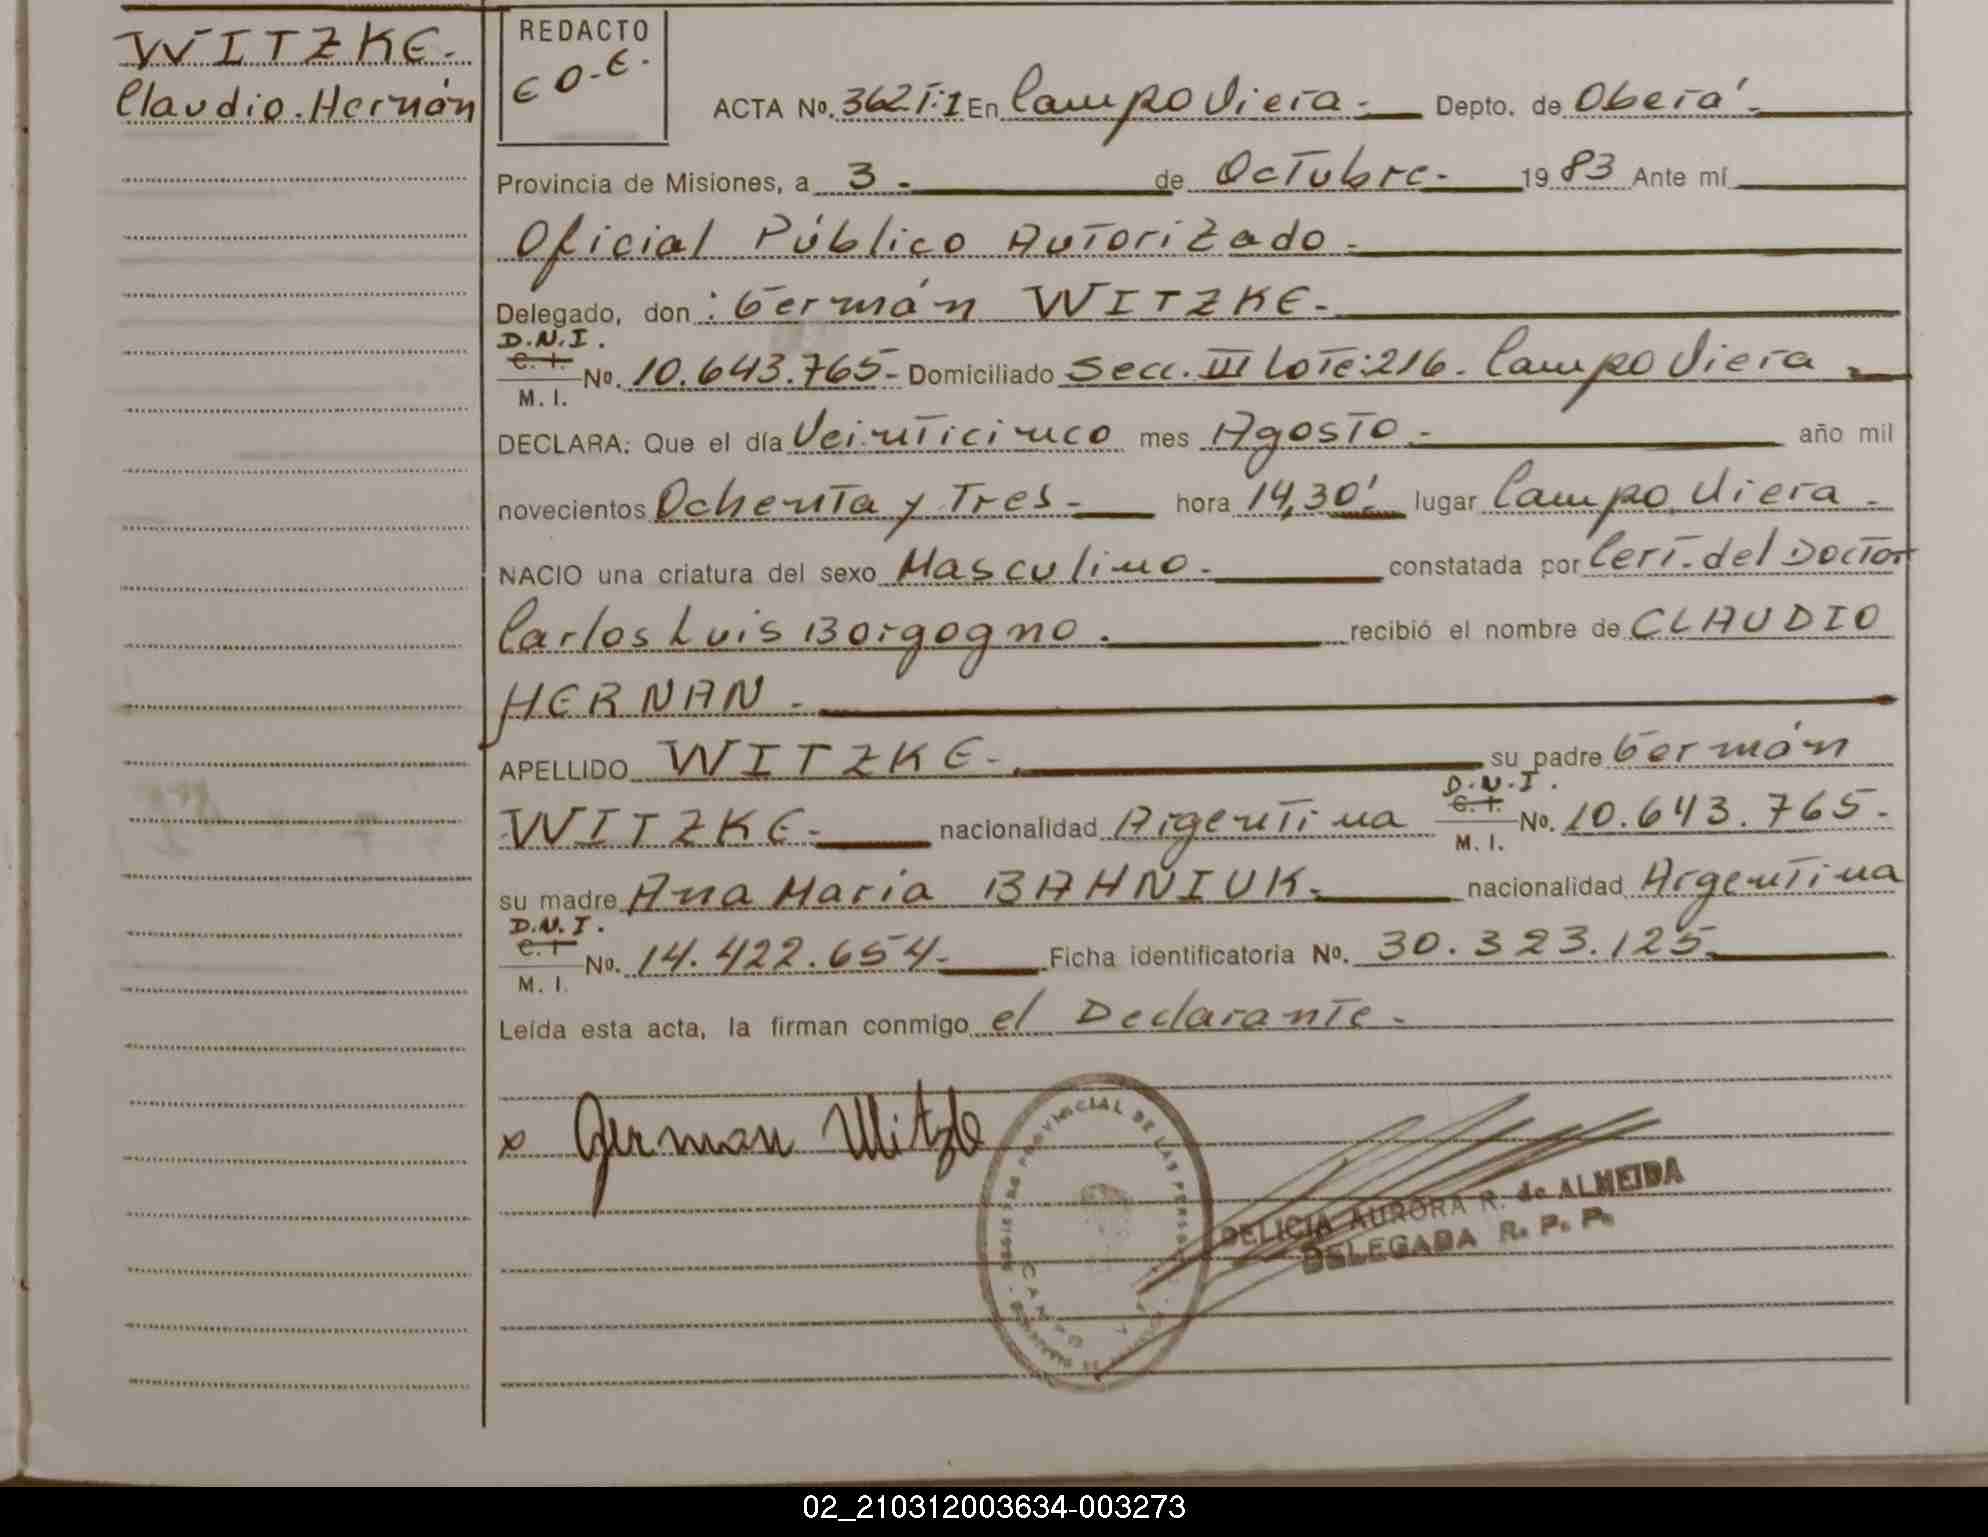 WITZKE.
Claudio.Hernán
REDACTO
E O.E.
ACTA Nº. 362T:I En Campo Viera.- Depto. de Oberá.-
Provincia de Misiones, a 3.- de Octubre.- 1983 Ante mí
Oficial Público Autorizado.-
Delegado, don: Germán WITZKE.-
D.N.I.
C. I. Nº. 10.643.765- Domiciliado Secc. III Lote:216. Campo Viera
M. I.
DECLARA: Que el día Veinticinco mes Agosto.- año mil
novecientos Ochenta y Tres- hora 14,30' lugar Campo Viera.-
NACIO una criatura del sexo Masculino.- constatada por Cert. del Doctor
Carlos Luis Borgogno. recibió el nombre de CLAUDIO
HERNAN.-
APELLIDO WITZKE.- su padre Germán
D.N.I.
WITZKE.- nacionalidad Argentina C. I. Nº. 10.643.765.-
M. I.
su madre Ana Maria BAHNIUK.- nacionalidad Argentina
D.N.I.
C. I Nº. 14.422.654.- Ficha identificatoria Nº. 30.323.125.
M. I.
Leída esta acta, la firman conmigo el Declarante.-
x German Witzke
PROVINCIAL DE LAS PERSO
CAMPO
DELICIA AURORA R. de ALMEIDA
DELEGADA R. P. P.
02_210312003634-003273